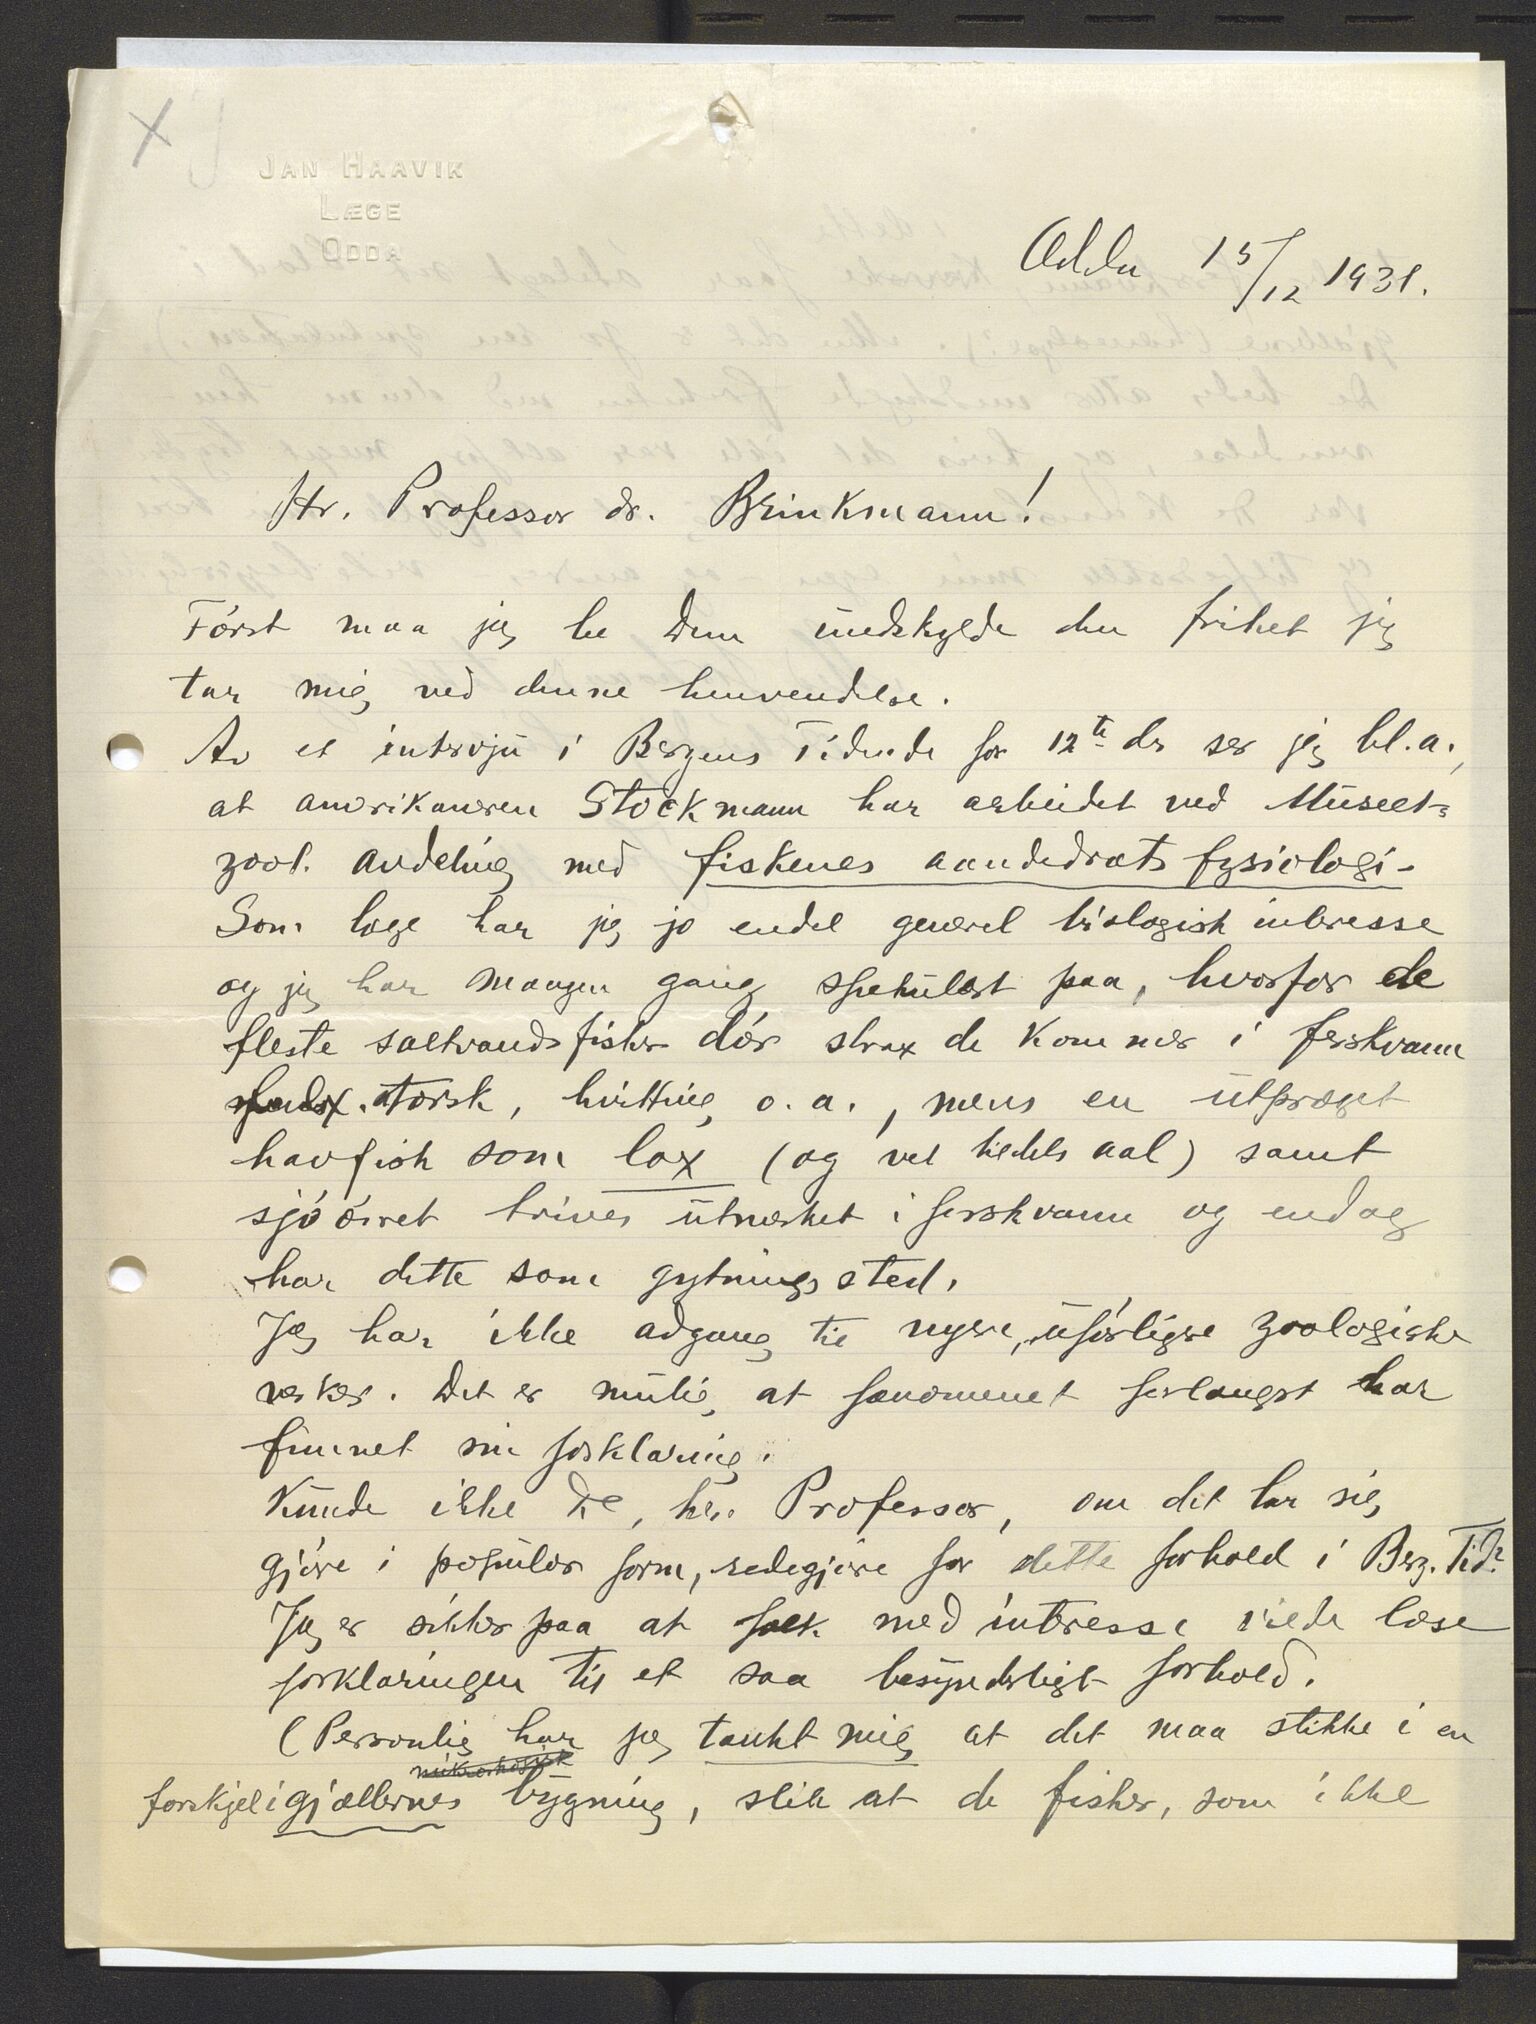 JAN HAAVIK
LÆGE
ODDA
Odda 15/12 1931.
Hr. Professor dr. Brinkmann!
Först maa jeg be Dem undskylde den frihet jeg
tar mig ved denne henvendelse.
Av et intervju i Bergens Tidende for 12te ds ser jeg bl.a.,
at amerikaneren Stockmann har arbeidet ved Museets
zool. avdeling med fiskenes aandedræts fysiologi.
Som læge har jeg jo endel generel biologisk interesse
og jeg har mangen gang spekulert paa, hvorfor de
fleste saltvandsfisker dör strax de kommer i ferskvann
torsk, hvitting o.a., mens en utpræget
havfisk som lax (og vel tildels aal) samt
sjöörret trives utmerket i ferskvann og endog
har dette som gytningssted.
Jeg har ikke adgang til nyere, utförligere zoologiske
verker. Det er mulig, at fænomenet forlængst har
funnet sin forklaring.
Kunde ikke De, herr Professor, om det lar sig
gjöre i populær form, redegjöre for dette forhold i Berg. Tid?
Jeg er sikker paa at folk med interesse vilde læse
forklaringen til et saa besynderligt forhold.
(Personlig har jeg tænkt mig, at det maa stikke i en
mikroskopisk
forskjel i gjællernes bygning, slik at de fisker, som ikke